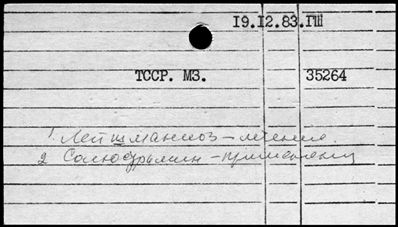 19.12.83.ГШ
ТССР. МЗ. 35264
1. Лейшманиоз – лечение
2. Солюсурьмин – применение